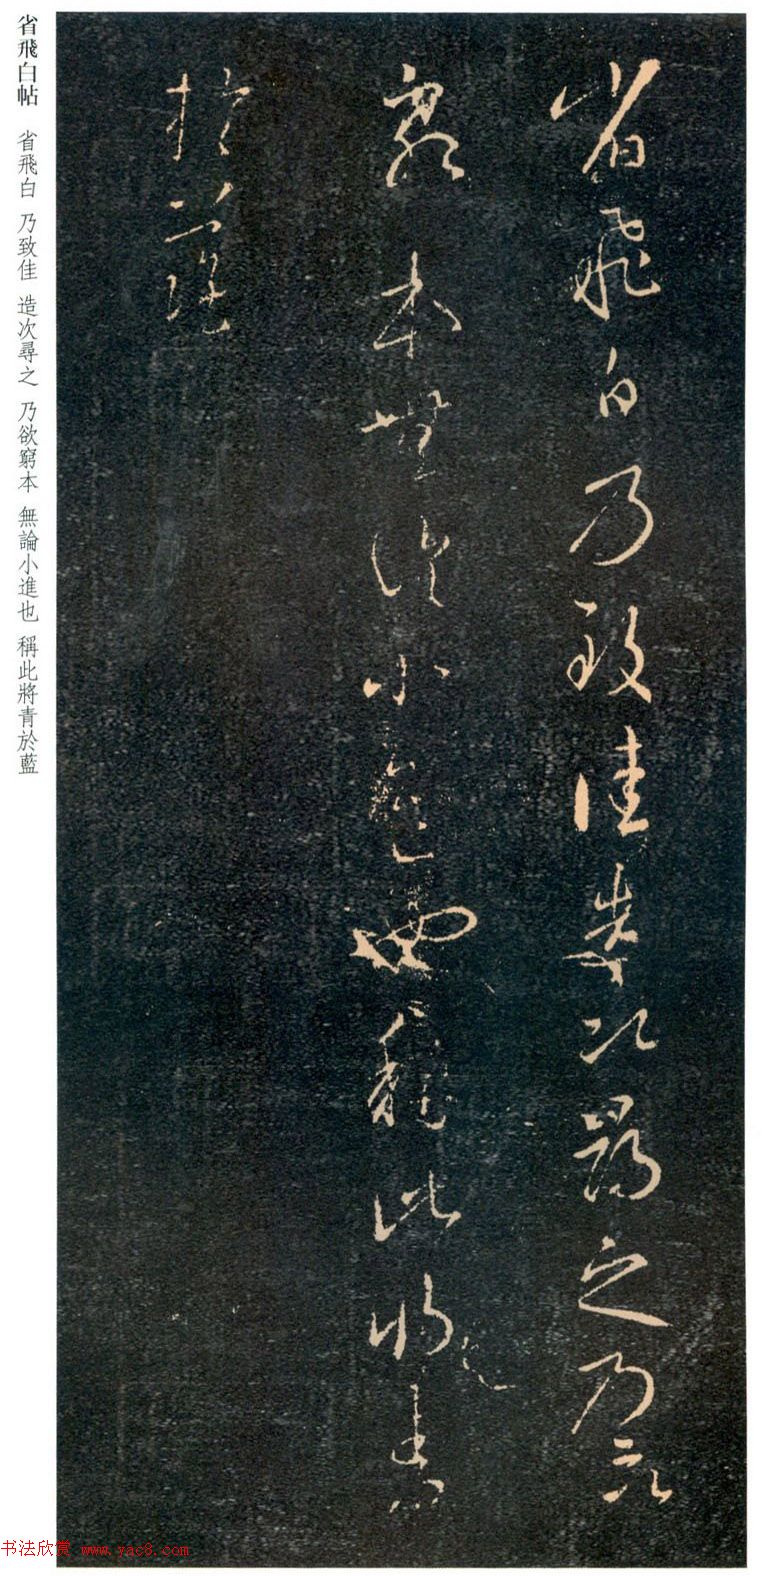 省飛白乃致佳造次尋之乃欲
窮本無論小進也稱此將青
於藍
省飛白帖 省飛白 乃致佳 造次尋之 乃欲窮本 無論小進也 稱此將青於藍
书法欣赏 www.yac8.com